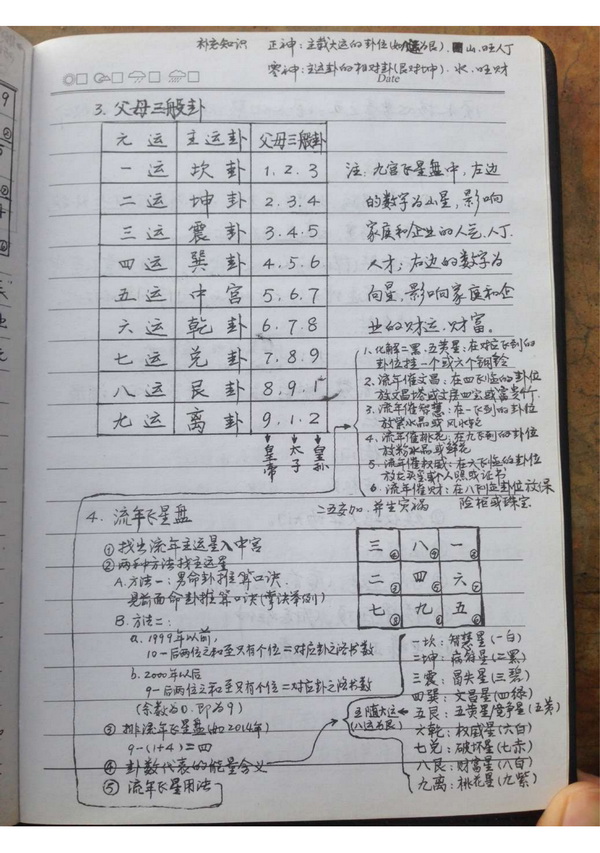 补充知识 正神：主载大运的卦位(如八运为艮)．山．旺人丁
零神：主运卦的相对卦(艮对坤)．水．旺财
Date
3. 父母三般卦
元运 主运卦 父母三般卦
一运 坎卦 1.2.3
二运 坤卦 2.3.4
三运 震卦 3.4.5
四运 巽卦 4.5.6
五运 中宫 5.6.7
六运 乾卦 6.7.8
七运 兑卦 7.8.9
八运 艮卦 8.9.1
九运 离卦 9.1.2
皇帝 太子 皇孙
注：九宫飞星盘中，左边
的数字为小星，影响
家庭和企业的人气．人丁．
人才；右边的数字为
向星，影响家庭和企
业的财运．财富。
1. 化解二黑．五黄星：在对应飞到的
卦位挂一个或六个铜铃
2. 流年催文昌：在四飞临的卦位
放文昌塔或文房四宝或富贵竹
3. 流年催智慧：在一飞到的卦位
放紫水晶或风水轮
4. 流年催桃花：在九飞到的卦位
放粉水晶或鲜花
5. 流年催权威：在六飞临的卦位
放 个人照或证书
6. 流年催财：在八飞临卦位放保
险柜或珠宝
4. 流年飞星盘
二五交加．并生灾祸
① 找出流年主运星入中宫
② 两种方法找主运星
A. 方法一：男命卦推算口诀．
见前面命卦推算口诀(掌诀举例)
B. 方法二：
a. 1999年以前，
10－后两位之和至又有个位＝对应卦之洛书数
b. 2000年以后
9－后两位之和至又有个位＝对应卦之洛书数
(余数为0．即为9)
③ 排流年飞星盘(如2014年)
9－(1+4)＝四
④ 卦数代表的能量含义
⑤ 流年飞星用法
三 八 一
二 四 六
七 九 五
五随大运
(八运为艮)
一坎：智慧星(一白)
二坤：病符星(二黑)
三震：冒失星(三碧)
四巽：文昌星(四绿)
五艮：五黄星/竞争星(五黄)
六乾：权威星(六白)
七兑：破坏星(七赤)
八艮：财富星(八白)
九离：桃花星(九紫)